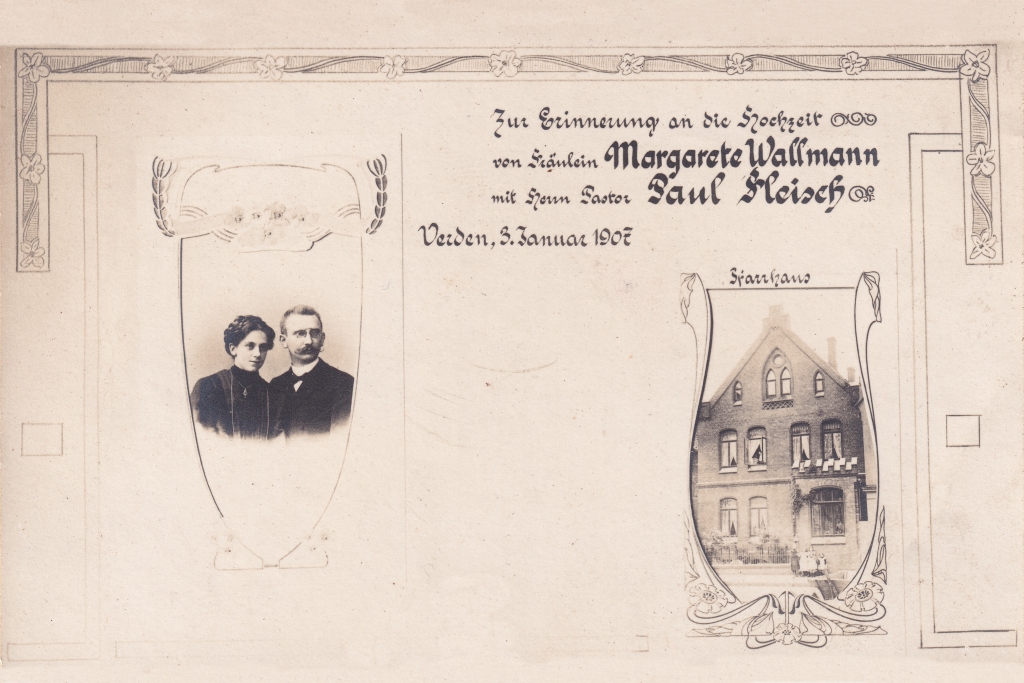 Zur Erinnerung an die Hochzeit
von Fräulein Margarete Wallmann
mit Herrn Pastor Paul Fleisch
Verden, 3. Januar 1907
Pfarrhaus